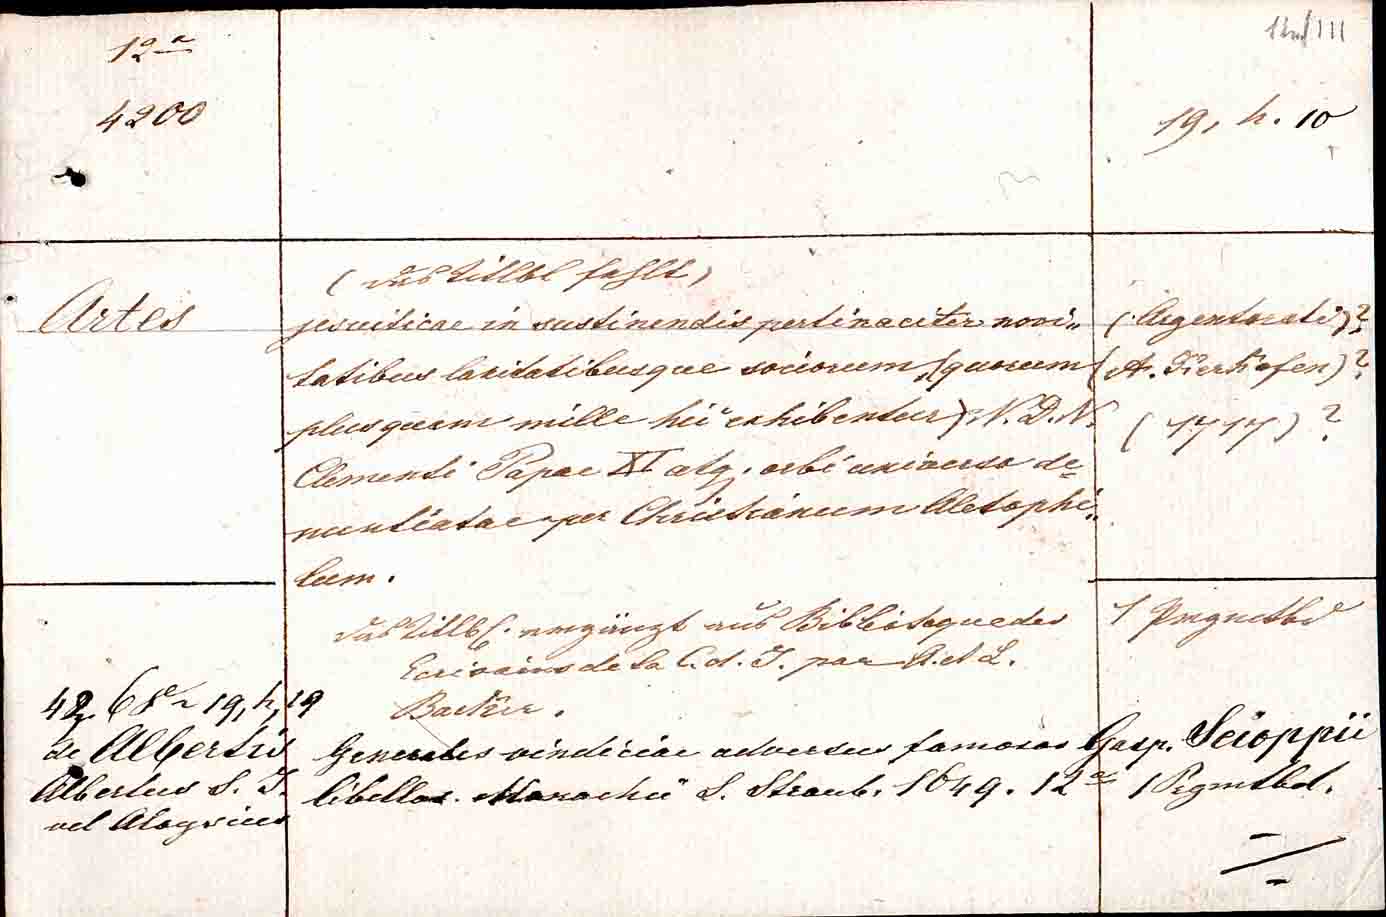 12a
4200
19, h. 10
Artes
(das Titlbl fehlt)
jesuiticae in sustinendis pertinaciter novi„
tatibus laxitatibusque sociorum, (quorum
plusquam mille hic exhibentur) N. D. N.
Clementi Papae XI atq. orbi universo de=
nuntiatae per Christianum Aletophi„
lum.
(Argentorati)?
(A. Kerkhofen)?
(1717)?
das Titlbl. ergänzt aus Biblioteque des
Ecrivains de la C. d. J. par A. et A.
Backer.
1 Prgmtbd
42. 68a 19, h, 19
de Albertis
Albertus S. J.
vel Aloysius
Generales vindiciae adversus famosos Gasp. Scioppii
libellos. Monachii S. Straub. 1649. 12a
1 Prgmtbd.